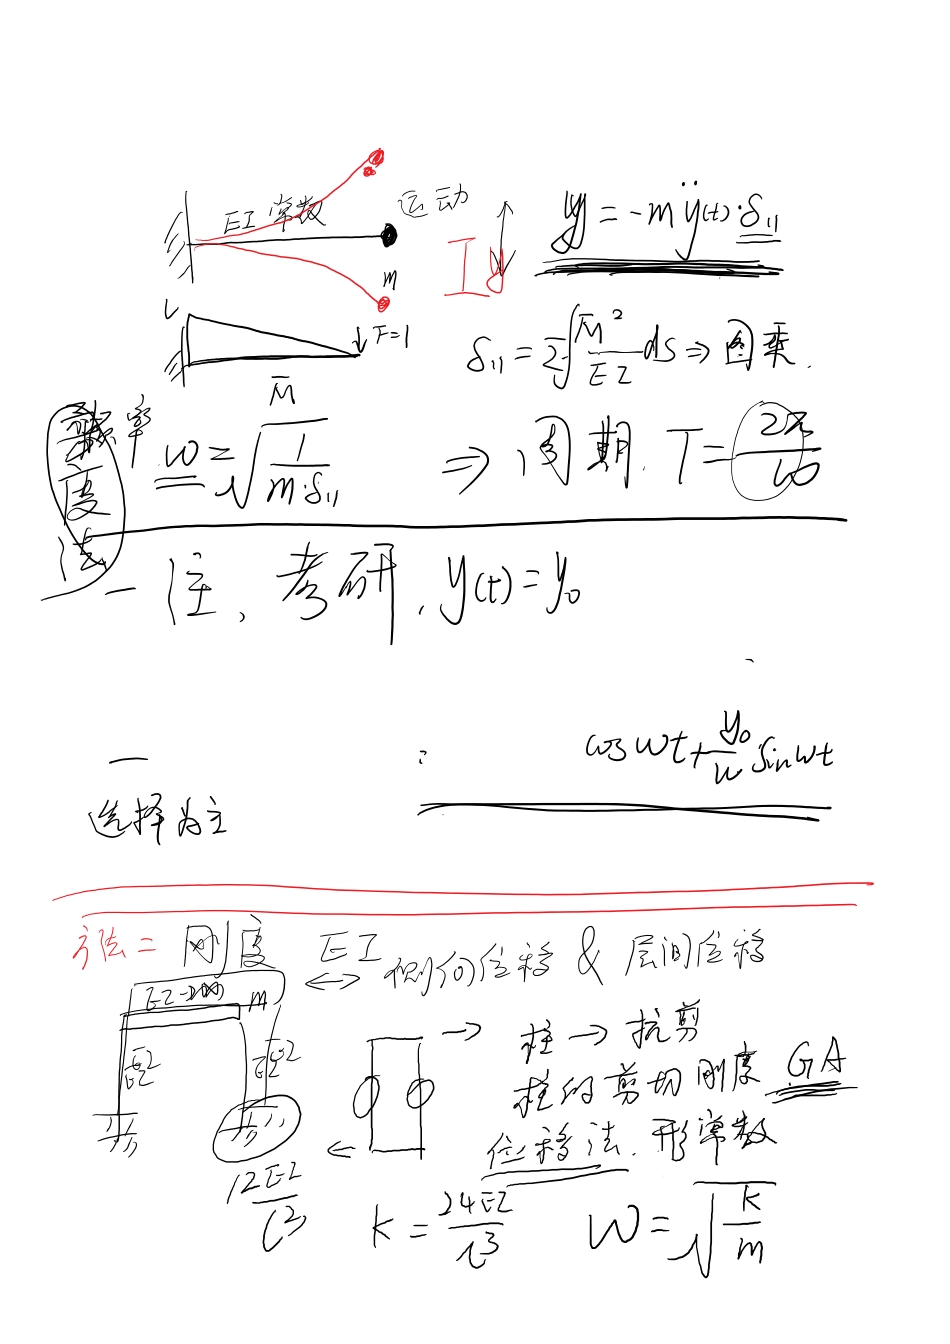 EI 常数 运动
y = -mÿ(t)·δ₁₁
m I y
L F=1
δ₁₁ = Σ∫M̄²/EI ds ⇒ 图乘.
M̄
度法
率 ω = √(1/(m·δ₁₁)) ⇒ 周期. T = 2π/ω
一注、考研. y(t) = y₀
cosωt + y₀/ω sinωt
选择为主
方法二 刚度 EI 侧向位移 & 层间位移
EI→∞ m
EI EI
柱 → 抗剪
柱的剪切刚度 GA
位移法. 形常数
12EI/l³
K = 24EI/l³ ω = √(K/m)